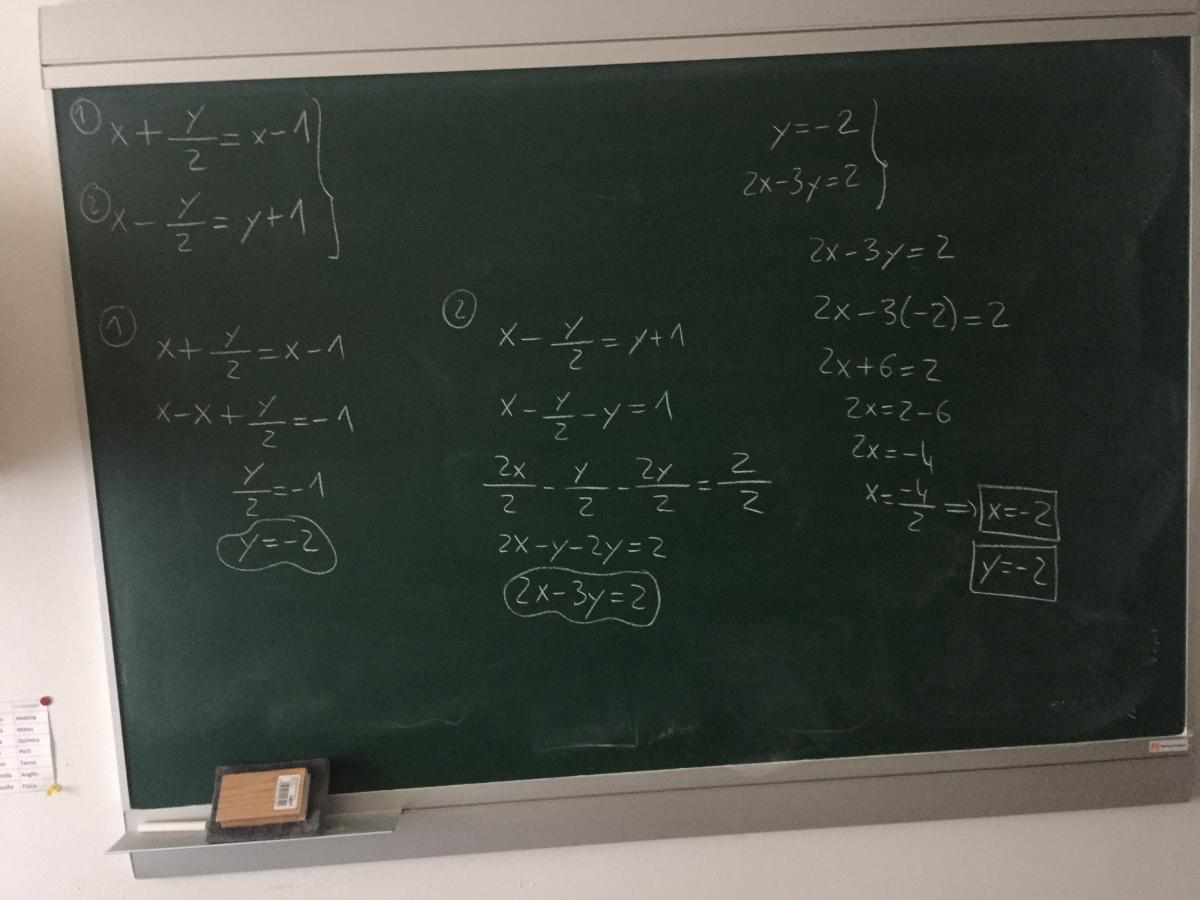 ① x + y/2 = x - 1
② x - y/2 = y + 1
①
x + y/2 = x - 1
x - x + y/2 = -1
y/2 = -1
y = -2
②
x - y/2 = y + 1
x - y/2 - y = 1
2x/2 - y/2 - 2y/2 = 2/2
2x - y - 2y = 2
2x - 3y = 2
y = -2
2x - 3y = 2
2x - 3y = 2
2x - 3(-2) = 2
2x + 6 = 2
2x = 2 - 6
2x = -4
x = -4/2 => x = -2
y = -2
Història
Mates
Química
Tecno
Anglès
Física